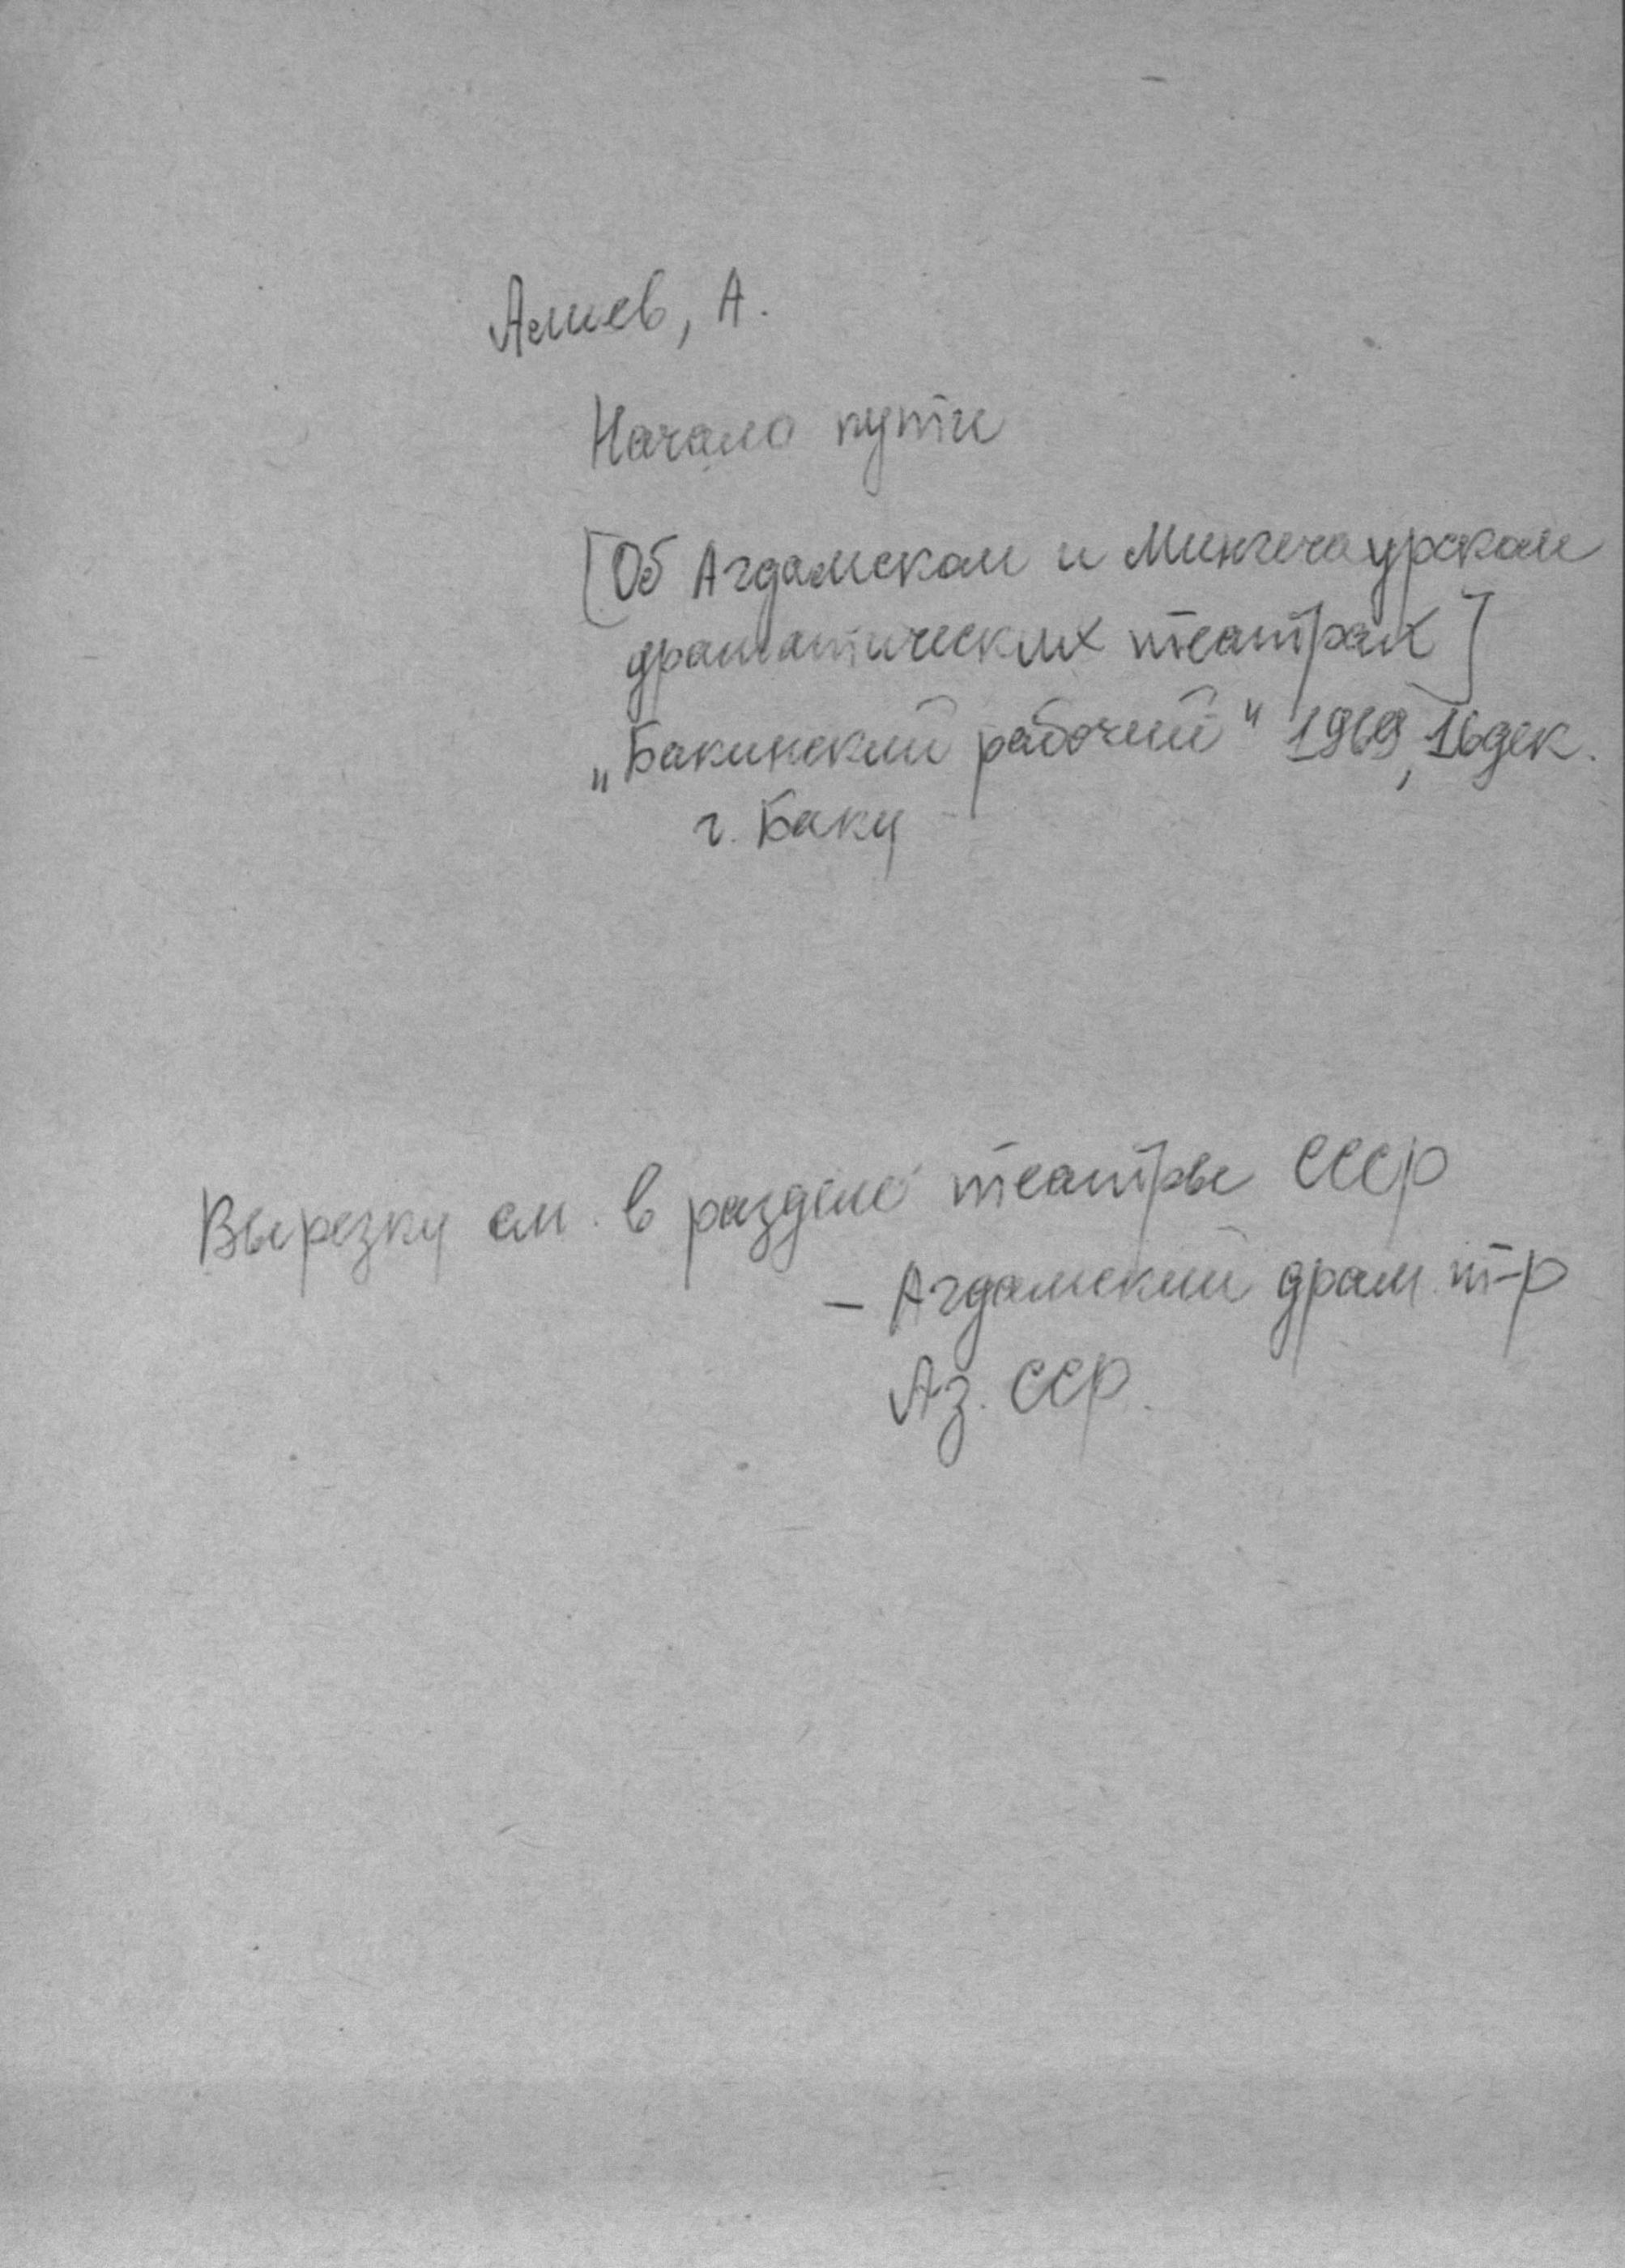 Алиев, А.
Начало пути
[Об Агдамском и Мингечаурском
драматических театрах]
„Бакинский рабочий" 1969, 16 дек.
г. Баку
Вырезку см. в разделе театры СССР
– Агдамский драм. т-р
Аз. ССР.